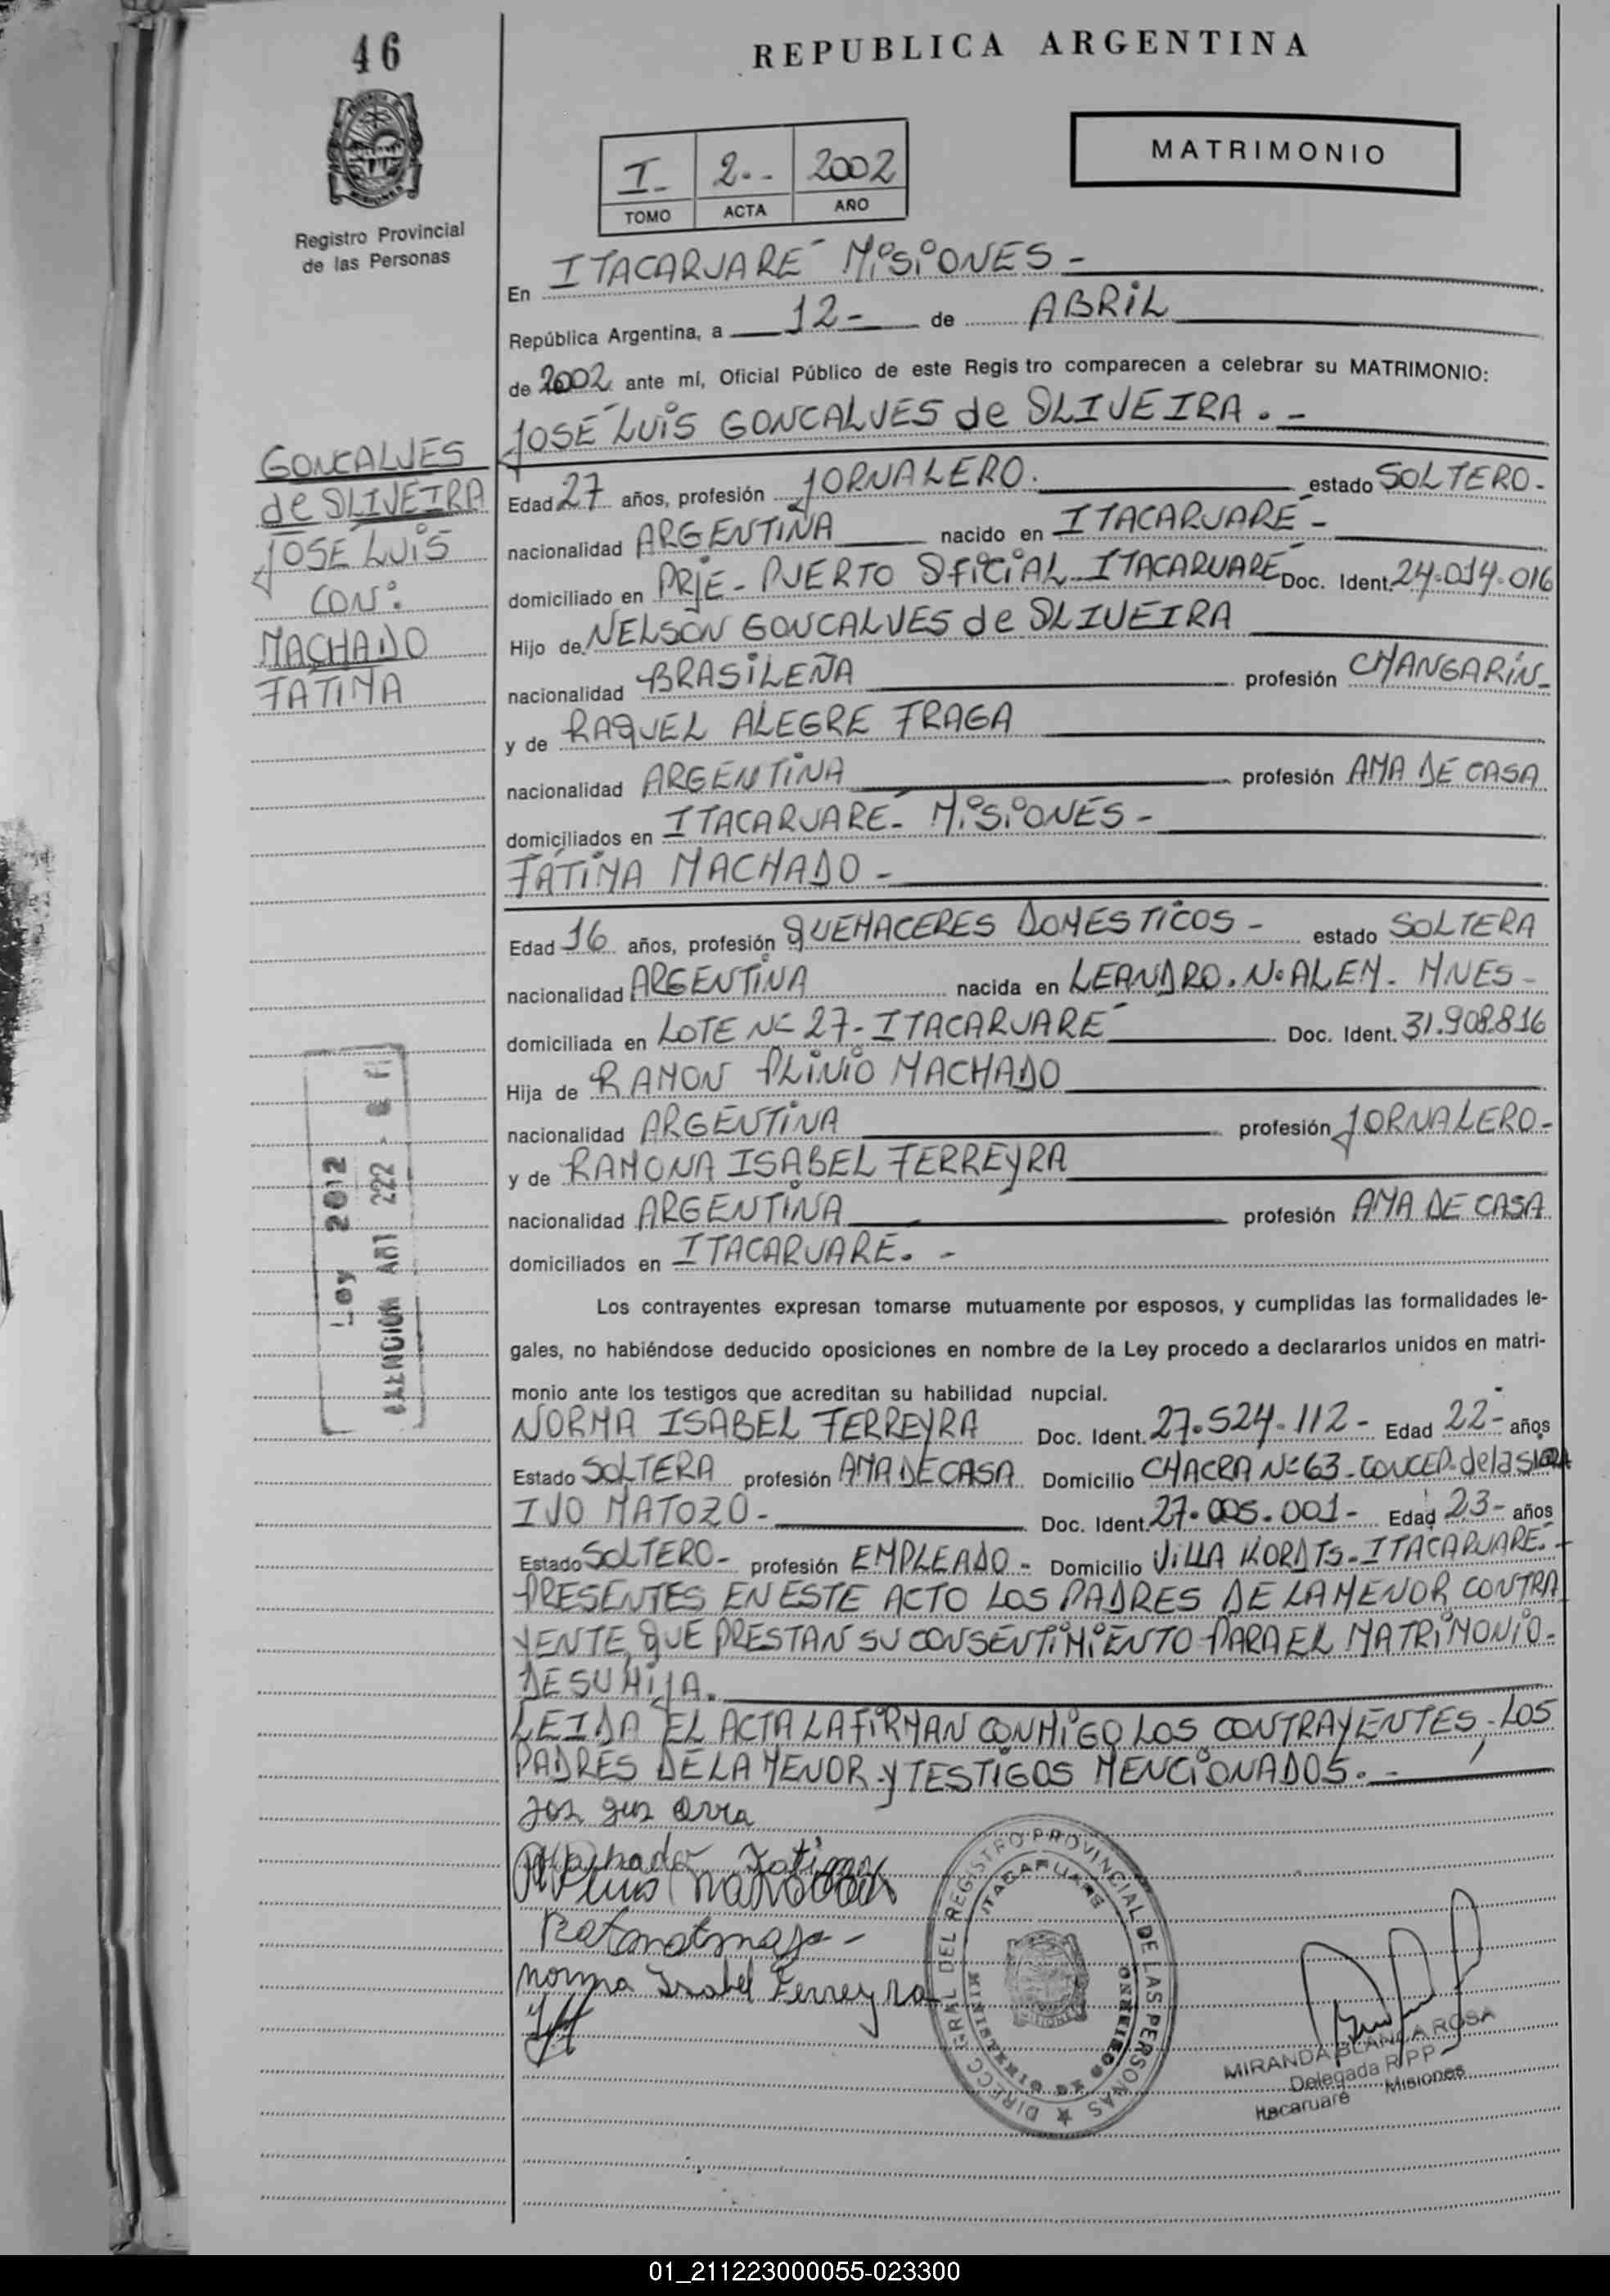 46
REPUBLICA ARGENTINA
MATRIMONIO
I- 2-- 2002
TOMO ACTA AÑO
Registro Provincial
de las Personas
En ITACARUARÉ MISIONES -
República Argentina, a 12- de ABRIL
de 2002 ante mí, Oficial Público de este Regis tro comparecen a celebrar su MATRIMONIO:
JOSÉ LUIS GONCALVES de OLIVEIRA. -
GONCALVES
de OLIVEIRA
JOSÉ LUIS
CON:
MACHADO
FATIMA
Edad 27 años, profesión JORNALERO. estado SOLTERO-
nacionalidad ARGENTINA nacido en ITACARUARÉ-
domiciliado en PRJE- PUERTO OFICIAL ITACARUARÉ Doc. Ident. 24.014.016
Hijo de NELSON GONCALVES de OLIVEIRA
nacionalidad BRASILEÑA profesión CHANGARÍN-
y de RAQUEL ALEGRE FRAGA
nacionalidad ARGENTINA profesión AMA DE CASA
domiciliados en ITACARUARÉ- MISIONES -
FÁTIMA MACHADO -
Edad 16 años, profesión QUEHACERES DOMESTICOS - estado SOLTERA
nacionalidad ARGENTINA nacida en LEANDRO. N. ALEM- MNES-
domiciliada en LOTE Nº 27- ITACARUARÉ Doc. Ident. 31.908.816
Hija de RAMON PLINIO MACHADO
nacionalidad ARGENTINA profesión JORNALERO-
y de RAMONA ISABEL FERREYRA
nacionalidad ARGENTINA profesión AMA DE CASA
domiciliados en ITACARUARE. -
Ley 2012
EXENCION ART 222
Los contrayentes expresan tomarse mutuamente por esposos, y cumplidas las formalidades le-
gales, no habiéndose deducido oposiciones en nombre de la Ley procedo a declararlos unidos en matri-
monio ante los testigos que acreditan su habilidad nupcial.
NORMA ISABEL FERREYRA Doc. Ident. 27.524.112- Edad 22- años
Estado SOLTERA profesión AMA DE CASA Domicilio CHACRA Nº 63- CONCEP. de la SIERRA
IVO MATOZO- Doc. Ident. 27.005.001- Edad 23- años
Estado SOLTERO- profesión EMPLEADO- Domicilio VILLA KORDTS- ITACARUARE.-
PRESENTES EN ESTE ACTO LOS PADRES DE LA MENOR CONTRA
YENTE, QUE PRESTAN SU CONSENTIMIENTO PARA EL MATRIMONIO-
DE SU HIJA.
LEIDA EL ACTA LA FIRMAN CONMIGO LOS CONTRAYENTES, LOS
PADRES DE LA MENOR Y TESTIGOS MENCIONADOS. -
Machado Fatima
Norma Isabel Ferreyra
DIRECC. GRAL. DEL REGISTRO PROVINCIAL DE LAS PERSONAS
ITACARUARE
MINISTERIO DE GOBIERNO
MISIONES
MIRANDA BLANCA ROSA
Delegada R.P.P.
Itacaruaré Misiones
01_211223000055-023300